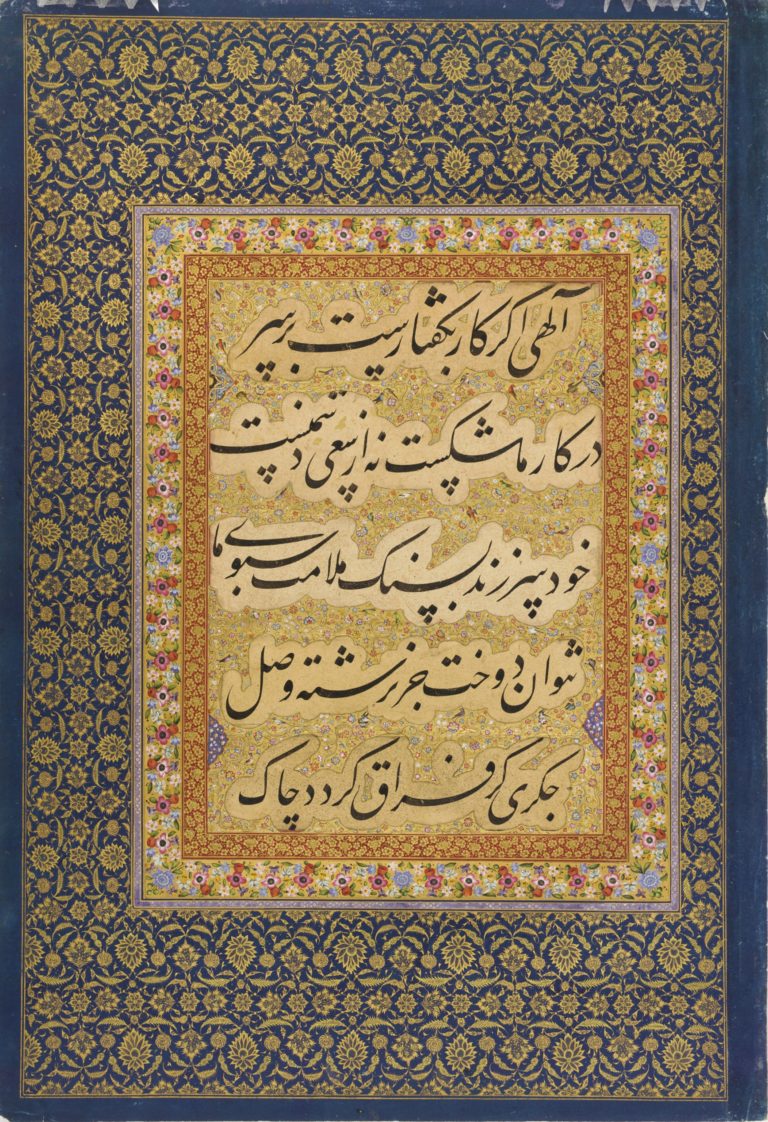 الهی اکر کار بکفتارست بر سر
در کار ما شکست نه از سعی دشمنست
خود سر زند بسنک ملامت سبوی ما
نتوان دوخت جز برشته وصل
جکری کز فراق کردد چاک